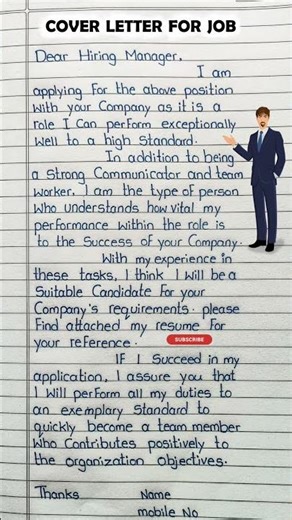 COVER LETTER FOR JOB
Dear Hiring Manager,
I am
applying for the above position
with your Company as it is a
role I Can perform exceptionally
well to a high standard.
In addition to being
a Strong Communicator and team
worker, I am the type of person
who understands how vital my
performance within the role is
to the Success of your Company.
With my experience in
these tasks, I think I will be a
Suitable Candidate for your
Company's requirements. please
Find attached my resume for
your reference.
SUBSCRIBE
IF I Succeed in my
application, I assure you that
I will perform all my duties to
an exemplary Standard to
quickly become a team member
who Contributes positively to
the organization objectives.
Thanks Name
mobile No